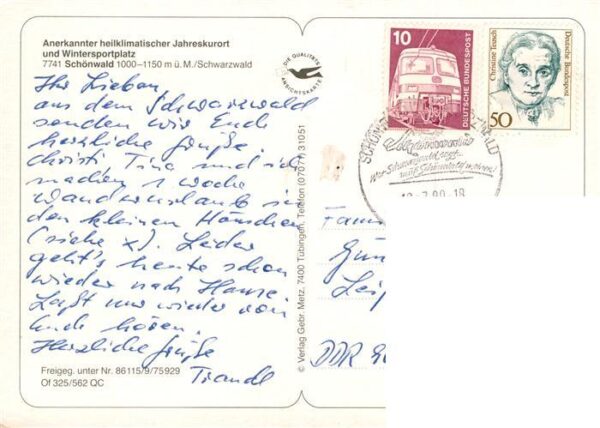 Anerkannter heilklimatischer Jahreskurort
und Wintersportplatz
7741 Schönwald 1000–1150 m ü. M./Schwarzwald
DIE QUALITÄTS
ANSICHTSKARTE
Ihr Lieben,
aus dem Schwarzwald
senden wir Euch
herzliche Grüße.
Christi Tina und ich
machen 1 Woche
Wanderurlaub in
den kleinen Häuschen
(siehe x). Leider
geht's heute schon
wieder nach Hause.
Laßt mal wieder von
Euch hören.
Herzliche Grüße
Traudl
Freigeg. unter Nr. 86115/9/75929
Of 325/562 QC
© Verlag Gebr. Metz, 7400 Tübingen, Telefon (07071) 31051
10
DEUTSCHE BUNDESPOST
Christine Teusch
Deutsche Bundespost
50
wer Schwarzwald sagt
muß Schönwald meinen!
7.90.18
Fam
Gün
Leip
DDR